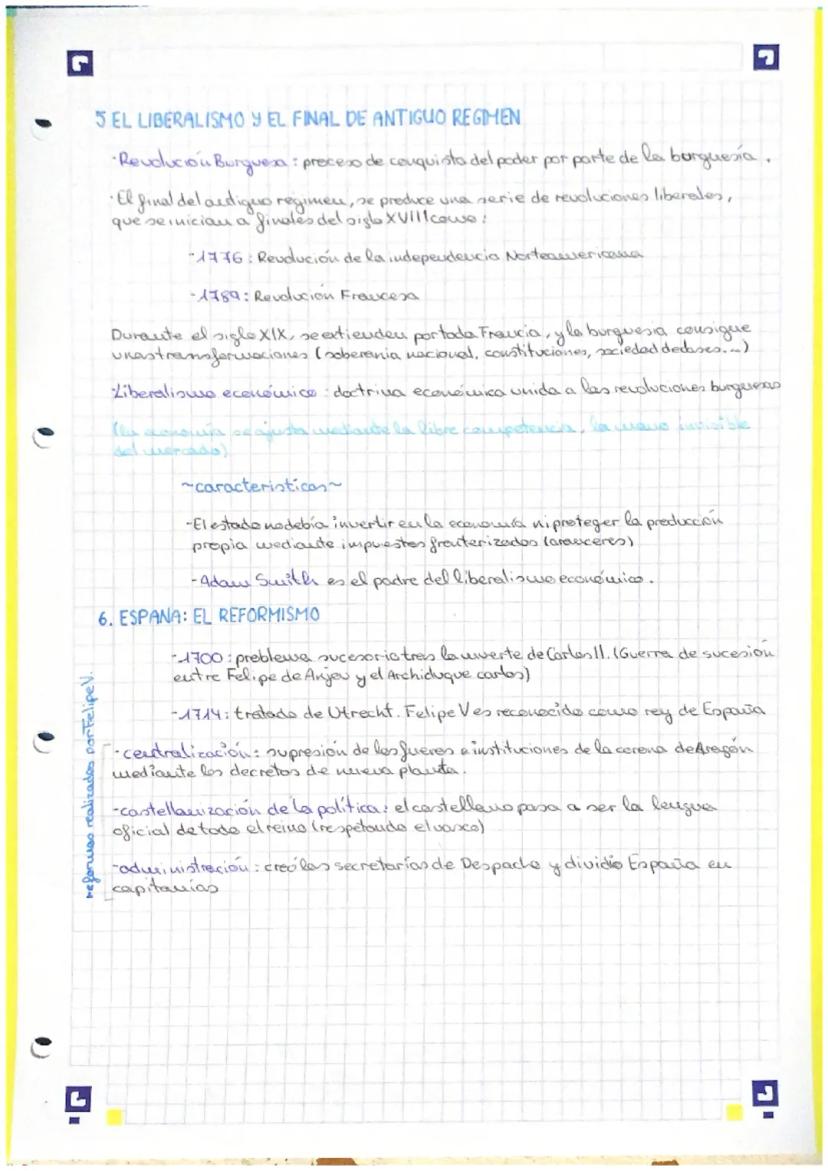 5 EL LIBERALISMO Y EL FINAL DE ANTIGUO REGIMEN
·Revolución Burguesa: proceso de conquista del poder por parte de la burguesía.
·El final del antiguo regimen, se produce una serie de revoluciones liberales,
que se inician a finales del siglo XVIII como:
-1776: Revolución de la independencia Norteamericana
-1789: Revolución Francesa
Durante el siglo XIX, se extienden por toda Francia, y la burguesia consigue
unas transformaciones (soberania nacional, constituciones, sociedad de clases...)
·Liberalismo económico: doctrina económica unida a las revoluciones burguesas
(la economía se ajusta mediante la libre competencia, la mano invisible
del mercado)
~caracteristicas~
-El estado no debía invertir en la economía ni proteger la producción
propia mediante impuestos fronterizados (aranceres)
-Adam Smith es el padre del liberalismo económico.
6. ESPAÑA: EL REFORMISMO
-1700: problema sucesorio tras la muerte de Carlos II. (Guerra de sucesión
entre Felipe de Anjou y el Archiduque carlos)
-1714: tratado de Utrecht. Felipe V es reconocido como rey de España
reformas realizadas por Felipe V.
-centralización: supresión de los fueros e instituciones de la corona de Aragón
mediante los decretos de nueva planta.
-castellanización de la política: el castellano pasa a ser la lengua
oficial de todo el reino (respetando el vasco)
-administración: creó las secretarías de Despacho y dividió España en
capitanías